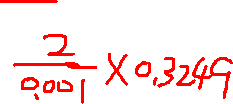 2
0.001 × 0.3249